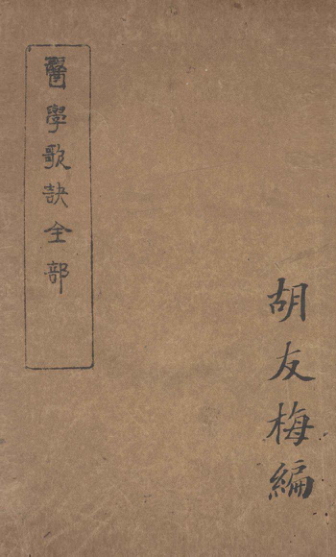 胡友梅編
醫學歌訣全部